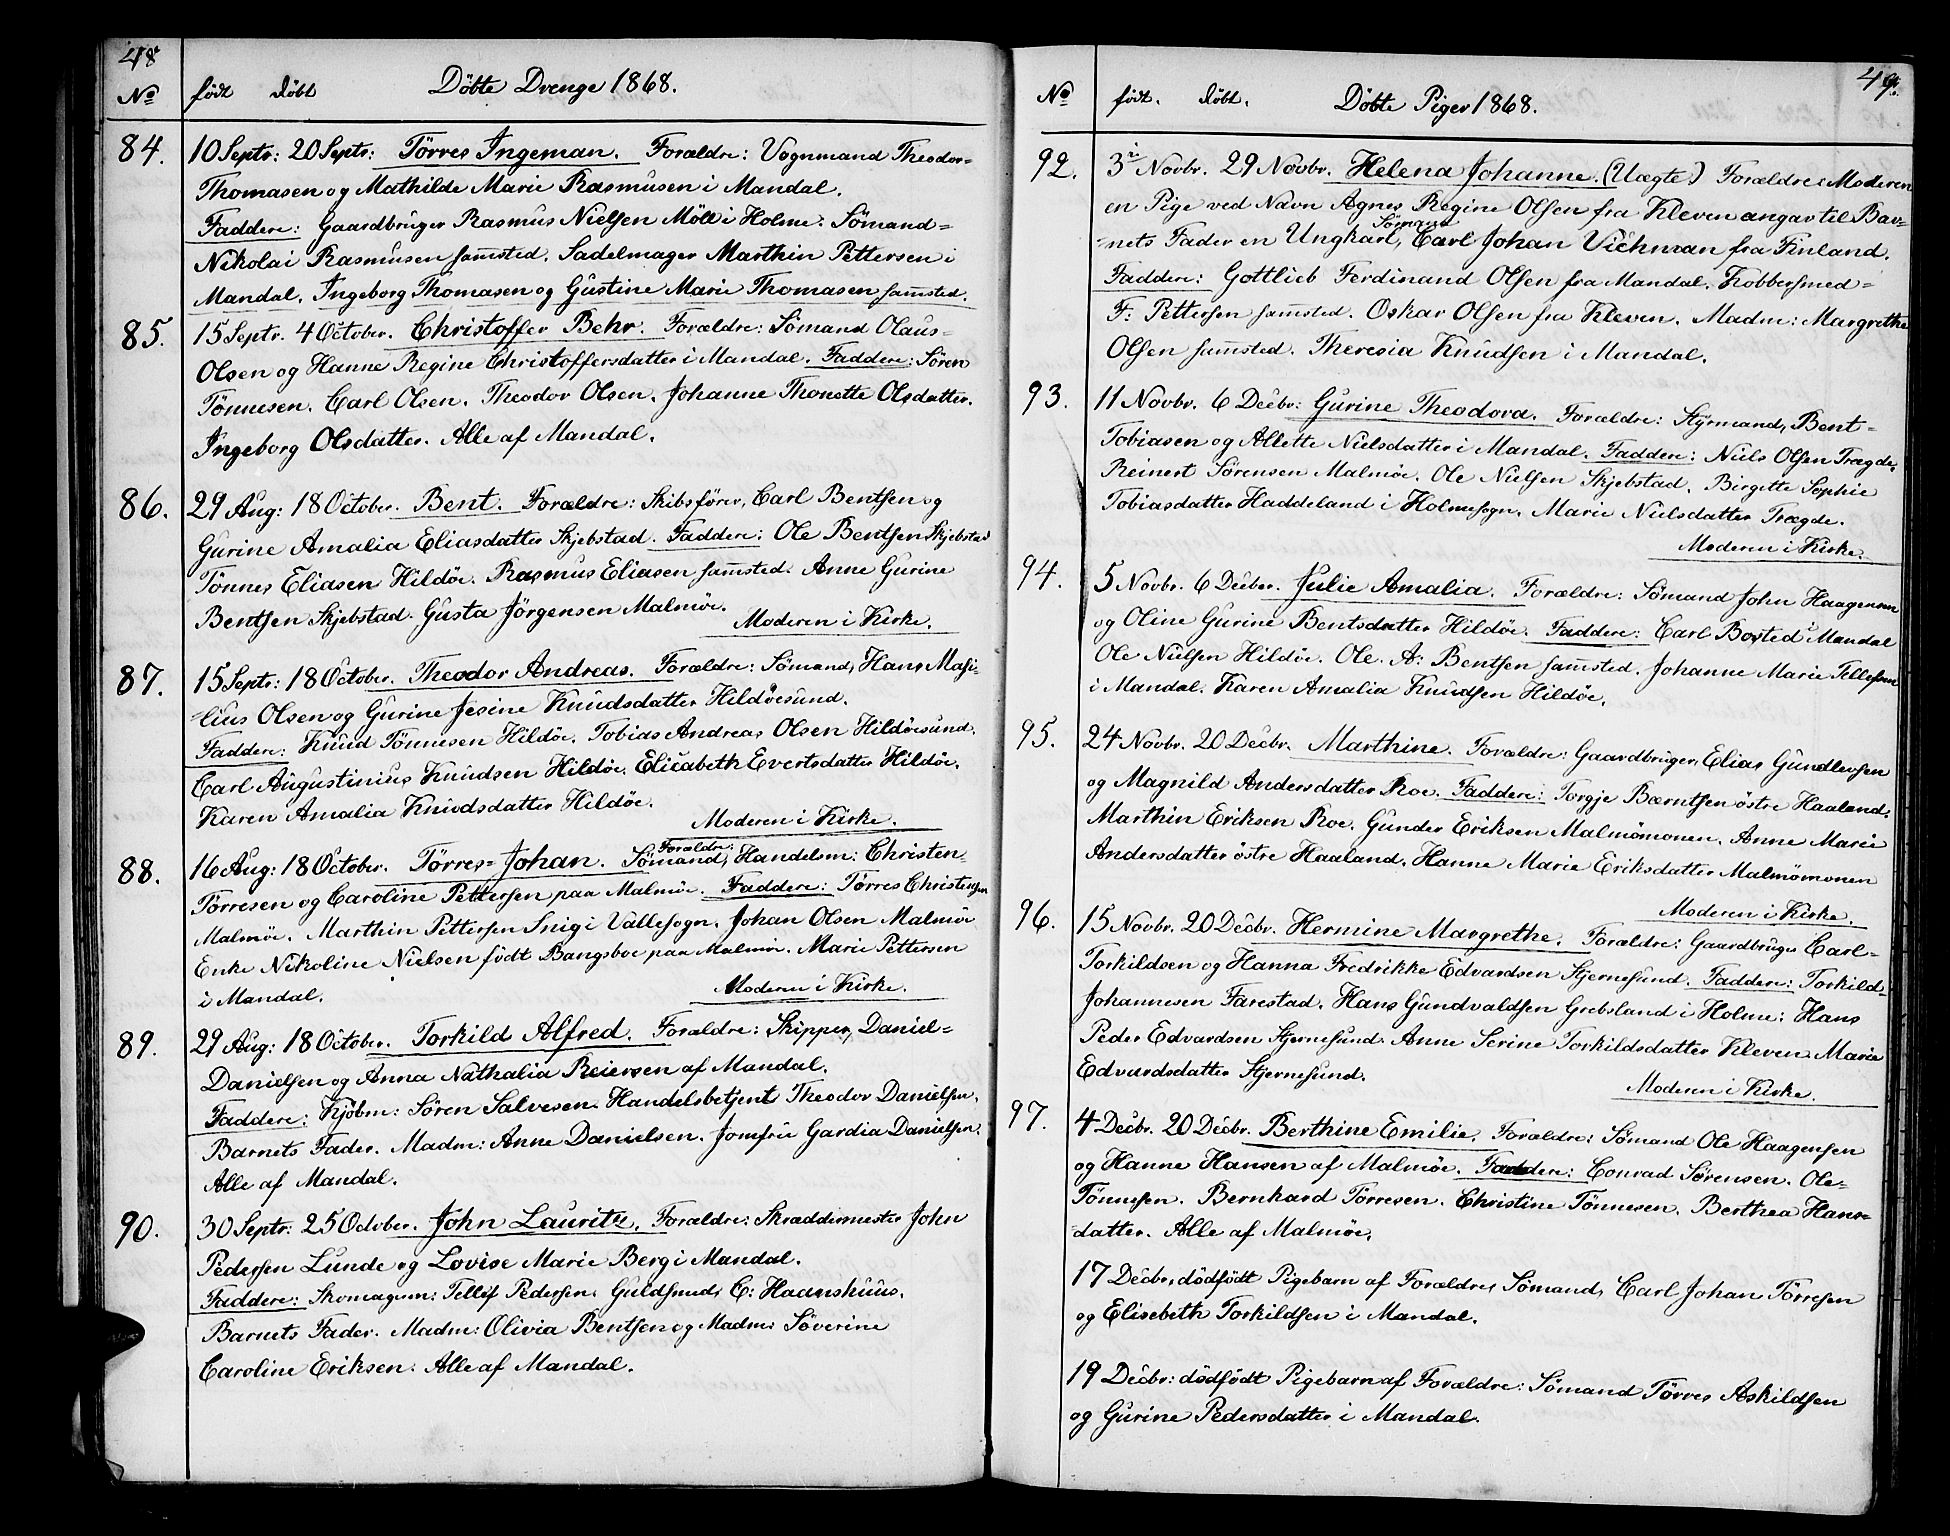 48
No födt döbt Döbte Drenge 1868.
84. 10 Septr: 20 Septr: Törres Ingeman. Forældre: Vognmand Theodor=
Thomasen og Mathilde Marie Rasmusen i Mandal.
Faddere: Gaardbruger Rasmus Nielsen Möll i Holme. Sömand=
Nikolai Rasmusen samsted. Sadelmager Marthin Pettersen i
Mandal. Ingeborg Thomasen og Gustine Marie Thomasen samsted.
85. 15 Septr. 4 October. Christoffer Behr. Forældre: Sömand Olaus=
Olsen og Hanne Regine Christoffersdatter i Mandal. Faddere: Sören
Tönnesen. Carl Olsen. Theodor Olsen. Johanne Thonette Olsdatter.
Ingeborg Olsdatter. Alle af Mandal.
86. 29 Aug: 18 October. Bent. Forældre: Skibsförer, Carl Bentsen og
Gurine Amalia Eliasdatter Skjebstad. Faddere: Ole Bentsen Skjebstad
Tönnes Eliasen Hildöe. Rasmus Eliasen samsted. Anne Gurine
Bentsen Skjebstad. Gusta Jörgensen Malmöe.
Moderen i Kirke.
87. 15 Septr: 18 October. Theodor Andreas. Forældre: Sömand, Hans Masi=
=lius Olsen og Gurine Jesine Knudsdatter Hildöesund.
Faddere: Knud Tönnesen Hildöe. Tobias Andreas Olsen Hildöesund.
Carl Augustinius Knudsen Hildöe. Elisabeth Evertsdatter Hildöe.
Karen Amalia Knudsdatter Hildöe.
Moderen i Kirke.
88. 16 Aug: 18 October. Törres=Johan. Forældre: Sömand, Handelsm: Christen=
Törresen og Caroline Pettersen paa Malmöe. Faddere: Törres Christensen
Malmöe. Marthin Pettersen Snig i Vallesogn. Johan Olsen Malmöe
Enke Nikoline Nielsen födt Bangsboe paa Malmöe. Marie Pettersen
i Mandal.
Moderen i Kirke.
89. 29 Aug: 18 October. Torkild Alfred. Forældre: Skipper, Daniel=
Danielsen og Anna Nathalia Reiersen af Mandal.
Faddere: Kjöbm: Sören Salvesen. Handelsbetjent Theodor Danielsen.
Barnets Fader. Madm: Anne Danielsen. Jomfru Gardia Danielsen.
Alle af Mandal.
90. 30 Septr: 25 October. John Lauritz. Forældre: Skræddermester John
Pedersen Lunde og Lovise Marie Berg i Mandal.
Faddere: Skomagerm: Tellef Pedersen. Guldsmed, C: Haanshuus.
Barnets Fader. Madm: Olivia Bentsen og Madm: Söverine
Caroline Eriksen. Alle af Mandal.
49.
No födt. döbt. Döbte Piger 1868.
92. 3 Novbr. 29 Novbr. Helena Johanne. (Uægte.) Forældre: Moderen
en Pige ved Navn Agnes Regine Olsen fra Kleven angav til Bar=
=nets Fader en Ungkarl, Sömand Carl Johan Vichman fra Finland.
Faddere: Gottlieb Ferdinand Olsen fra Mandal. Kobbersmed=
F: Pettersen samsted. Oskar Olsen fra Kleven. Madm: Margrethe
Olsen samsted. Theresia Knudsen i Mandal.
93. 11 Novbr. 6 Decbr: Gurine Theodora. Forældre: Styrmand, Bent=
Tobiasen og Allette Nielsdatter i Mandal. Faddere: Niels Olsen Trægde.
Reinert Sörensen Malmöe. Ole Nielsen Skjebstad. Birgitte Sophie
Tobiasdatter Haddeland i Holmesogn. Marie Nielsdatter Trægde.
Moderen i Kirke.
94. 5 Novbr. 6 Decbr. Julie Amalia. Forældre: Sömand John Haagensen
og Oline Gurine Bentsdatter Hildöe. Faddere: Carl Bosted i Mandal
Ole Nielsen Hildöe. Ole. A: Bentsen samsted. Johanne Marie Tellefsen
i Mandal. Karen Amalia Knudsen Hildöe.
95. 24 Novbr. 20 Decbr. Marthine. Forældre: Gaardbruger, Elias Gundlersen
og Magnild Andersdatter Roe. Faddere: Torgje Berntsen östre Haaland.
Marthin Eriksen Roe. Gunder Eriksen Malmömonen. Anne Marie
Andersdatter östre Haaland. Hanne Marie Eriksdatter Malmömonen
Moderen i Kirke.
96. 15 Novbr. 20 Decbr. Hermine Margrethe. Forældre: Gaardbruger Carl=
Torkildsen og Hanna Fredrikke Edvardsen Stjernesund. Faddere: Torkild=
Johannesen Farestad. Hans Gundvaldsen Grebsland i Holme. Hans
Peder Edvardsen Stjernesund. Anne Serine Torkildsdatter Kleven. Marie
Edvardsdatter Stjernesund.
Moderen i Kirke.
97. 4 Decbr. 20 Decbr. Berthine Emilie. Forældre: Sömand Ole Haagensen
og Hanne Hansen af Malmöe. Faddere: Conrad Sörensen. Ole=
Tönnesen. Bernhard Törresen. Christine Tönnesen. Berthea Hans=
=datter. Alle af Malmöe.
17 Decbr, dödfödt Pigebarn af Forældre, Sömand, Carl Johan Törresen
og Elisebeth Torkildsen i Mandal.
19 Decbr: dödfödt Pigebarn af Forældre: Sömand Törres Askildsen
og Gurine Pedersdatter i Mandal.